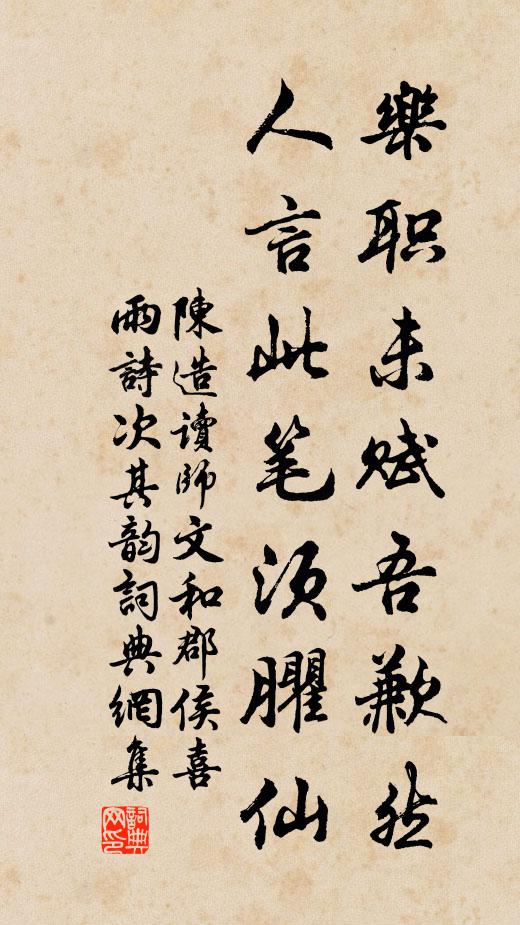 樂职未赋吾歉然
人言此笔须臞仙
陳造讀師文和郡侯喜
雨詩次其韵詞典網集
詞典网印